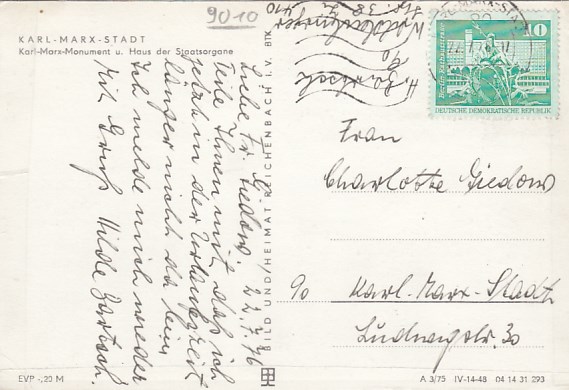 9010
KARL-MARX-STADT
Karl-Marx-Monument u. Haus der Staatsorgane
Liebe Fr. Giedow. 22.7.76
Teile Ihnen mit daß ich
jetzt in der Urlaubszeit
länger nicht da bin.
Ich melde mich wieder
Mit Gruß Hilde Bartsch.
BILD UND HEIMAT REICHENBACH I. V. BTK
H. Bartsch
90
Str. 38
10
DEUTSCHE DEMOKRATISCHE REPUBLIK
Frau
Charlotte Giedow
90 Karl-Marx-Stadt
Ludwigstr. 30
EVP -,20 M
A 3/75 IV-14-48 04 14 31 293